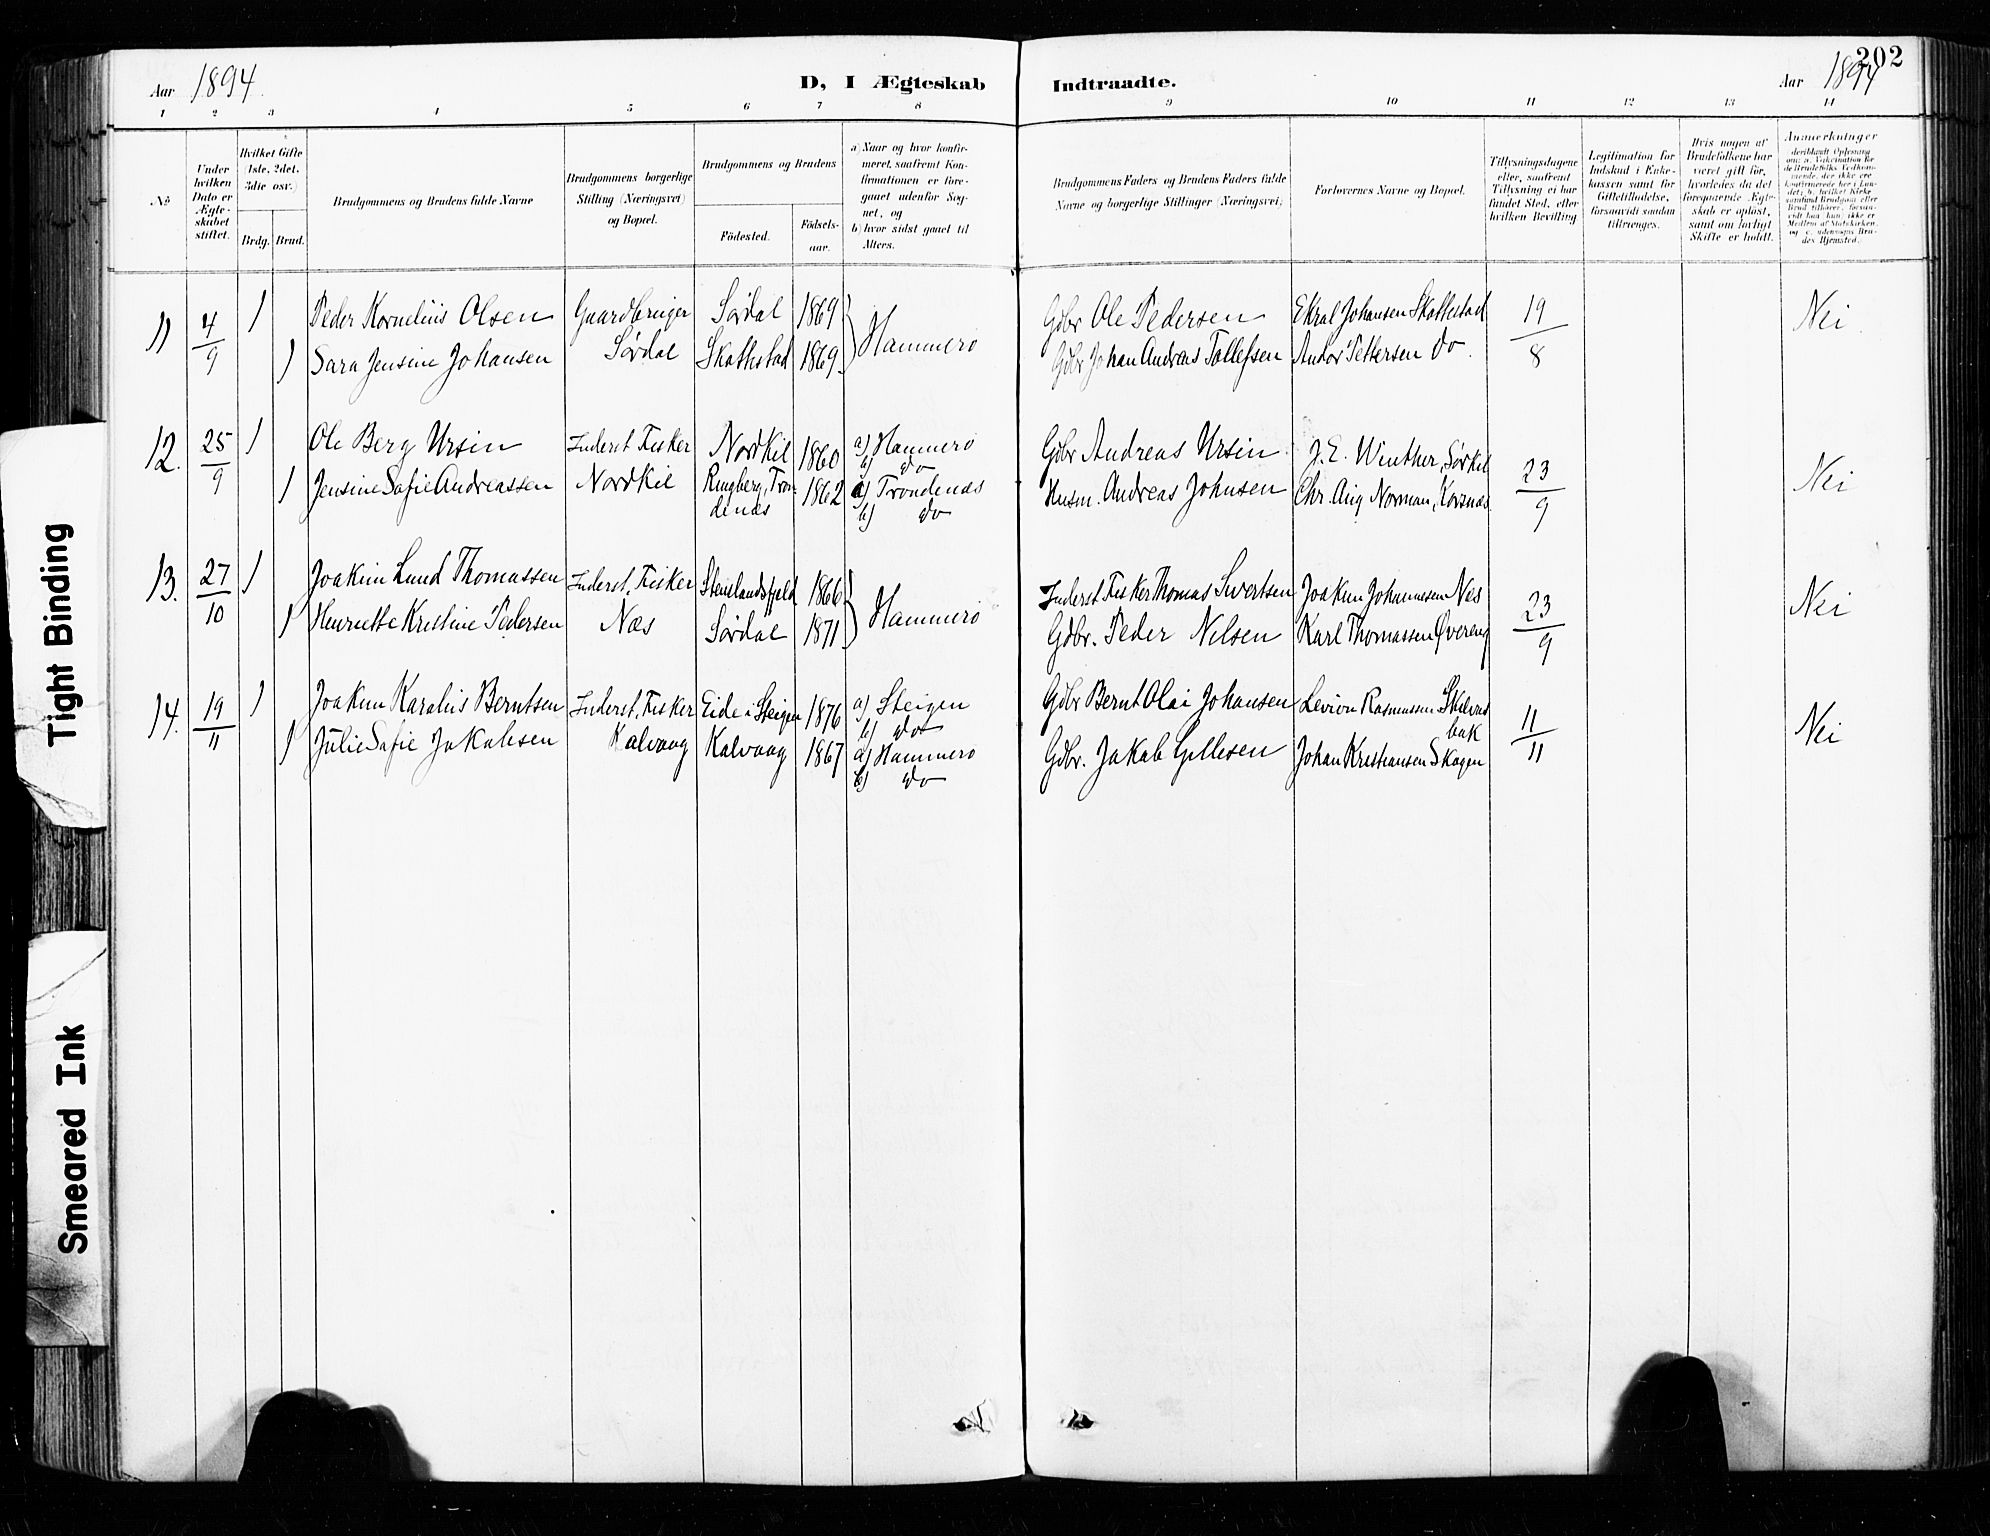 202
Aar 1894.
D, I Ægteskab Indtraadte.
Aar 1894
1 2 3 4 5 6 7 8 9 10 11 12 13 14
No
Under hvilken Dato er Ægteskabet stiftet.
Hvilket Gifte (1ste, 2det, 3die osv.)
Brdg. Brud.
Brudgommens og Brudens fulde Navne
Brudgommens borgerlige Stilling (Næringsvei) og Bopæl.
Brudgommens og Brudens
Fødested.
Fødselsaar.
a) Naar og hvor konfirmeret, saafremt Konfirmationen er foregaaet udenfor Sognet, og
b) hvor sidst gaaet til Alters.
Brudgommens Faders og Brudens Faders fulde Navne og borgerlige Stillinger (Næringsvei)
Forlovernes Navne og Bopæl.
Tillysningsdagene eller, saafremt Tillysning ei har fundet Sted, efter hvilken Bevilling
Legitimation for Indskud i Enkekassen samt for Giftetilladelse, forsaavidt saadan tiltrænges.
Hvis nogen af Brudefolkene har været gift før, hvorledes da det foregaaende Ægteskab er opløst, samt om lovligt Skifte er holdt.
Anmerkninger
11 4/9 1 Peder Kornelius Olsen Gaardbruger Sørdal 1869 Hammerø Gdbr Ole Pedersen Johansen Skottestad 19/8 Nei.
1 Sara Jensine Johansen Sørdal Skottestad 1869 Gdbr Johan Andreas Tollefsen Andor Pettersen do.
12. 25/9 1 Ole Berg Ursin Inderst, Fisker Nordkil 1860 a) Hammerø b) do Gdbr Andreas Ursin J. E. Winther, Sørkil 23/9 Nei
1 Jensine Sofie Andreassen Nordkil Ringberg, Trondenæs 1862 a) Trondenæs b) do Husm. Andreas Johnsen Chr. Aug Norman, Korsnæs
13. 27/10 1 Joakim Lund Thomassen Inderst, Fisker 1866 Hammerø Inderst Fisker Thomas Sivertsen Joakim Johannessen Nes 23/9 Nei
1 Henriette Kristine Pedersen Næs Sørdal 1871 Gdbr. Peder Nilsen Karl Thomassen Øvereng
14. 19/11 1 Joakim Karolius Berntsen Inderst, Fisker Eide i Steigen 1876 a) Steigen b) do Gdbr Bernt Olai Johansen Rasmussen 11/11 Nei
1 Julie Sofie Jakobsen Kalvaag Kalvaag 1867 a) Hammerø b) do Gdbr. Jakob Gillesen Johan Kristiansen Skogen
Tight Binding
Smeared Ink